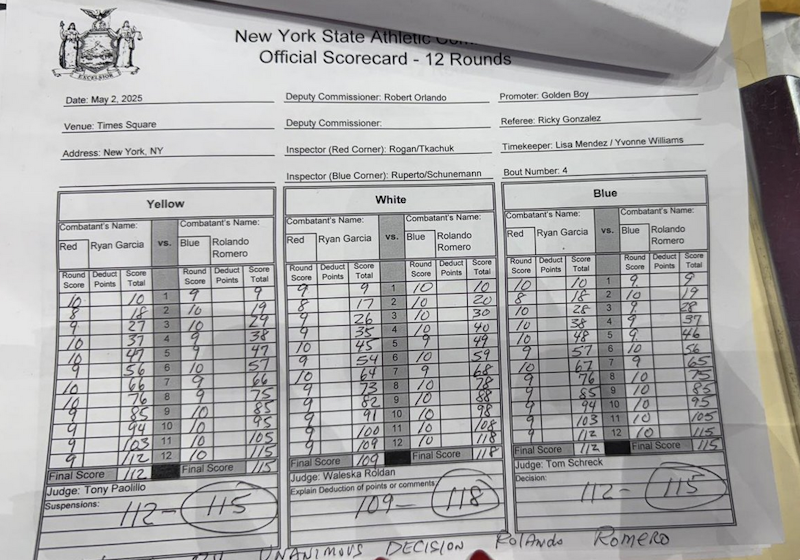 EXCELSIOR
New York State Athletic
Official Scorecard - 12 Rounds
Date: May 2, 2025
Deputy Commissioner: Robert Orlando
Promoter: Golden Boy
Venue: Times Square
Deputy Commissioner:
Referee: Ricky Gonzalez
Address: New York, NY
Inspector (Red Corner): Rogan/Tkachuk
Timekeeper: Lisa Mendez / Yvonne Williams
Inspector (Blue Corner): Ruperto/Schunemann
Bout Number: 4
Yellow
Combatant's Name: vs. Combatant's Name:
Red Ryan Garcia Blue Rolando Romero
Round Score Deduct Points Score Total Round Score Deduct Points Score Total
10 10 1 9 9
8 18 2 10 19
9 27 3 10 29
10 37 4 9 38
10 47 5 9 47
9 56 6 10 57
10 66 7 9 66
10 76 8 9 75
9 85 9 10 85
9 94 10 10 95
9 103 11 10 105
9 112 12 10 115
Final Score 112 Final Score 115
Judge: Tony Paolillo
Suspensions:
112 - 115
White
Combatant's Name: vs. Combatant's Name:
Red Ryan Garcia Blue Rolando Romero
Round Score Deduct Points Score Total Round Score Deduct Points Score Total
9 9 1 10 10
8 17 2 10 20
9 26 3 10 30
9 35 4 10 40
10 45 5 9 49
9 54 6 10 59
10 64 7 9 68
9 73 8 10 78
9 82 9 10 88
9 91 10 10 98
9 100 11 10 108
9 109 12 10 118
Final Score 109 Final Score 118
Judge: Waleska Roldan
Explain Deduction of points or comments
109 - 118
Blue
Combatant's Name: vs. Combatant's Name:
Red Ryan Garcia Blue Rolando Romero
Round Score Deduct Points Score Total Round Score Deduct Points Score Total
10 10 1 9 9
8 18 2 10 19
10 28 3 9 28
10 38 4 9 37
10 48 5 9 46
9 57 6 10 56
10 67 7 9 65
9 76 8 10 75
9 85 9 10 85
9 94 10 10 95
9 103 11 10 105
9 112 12 10 115
Final Score 112 Final Score 115
Judge: Tom Schreck
Decision:
112 - 115
UNANIMOUS DECISION ROLANDO ROMERO